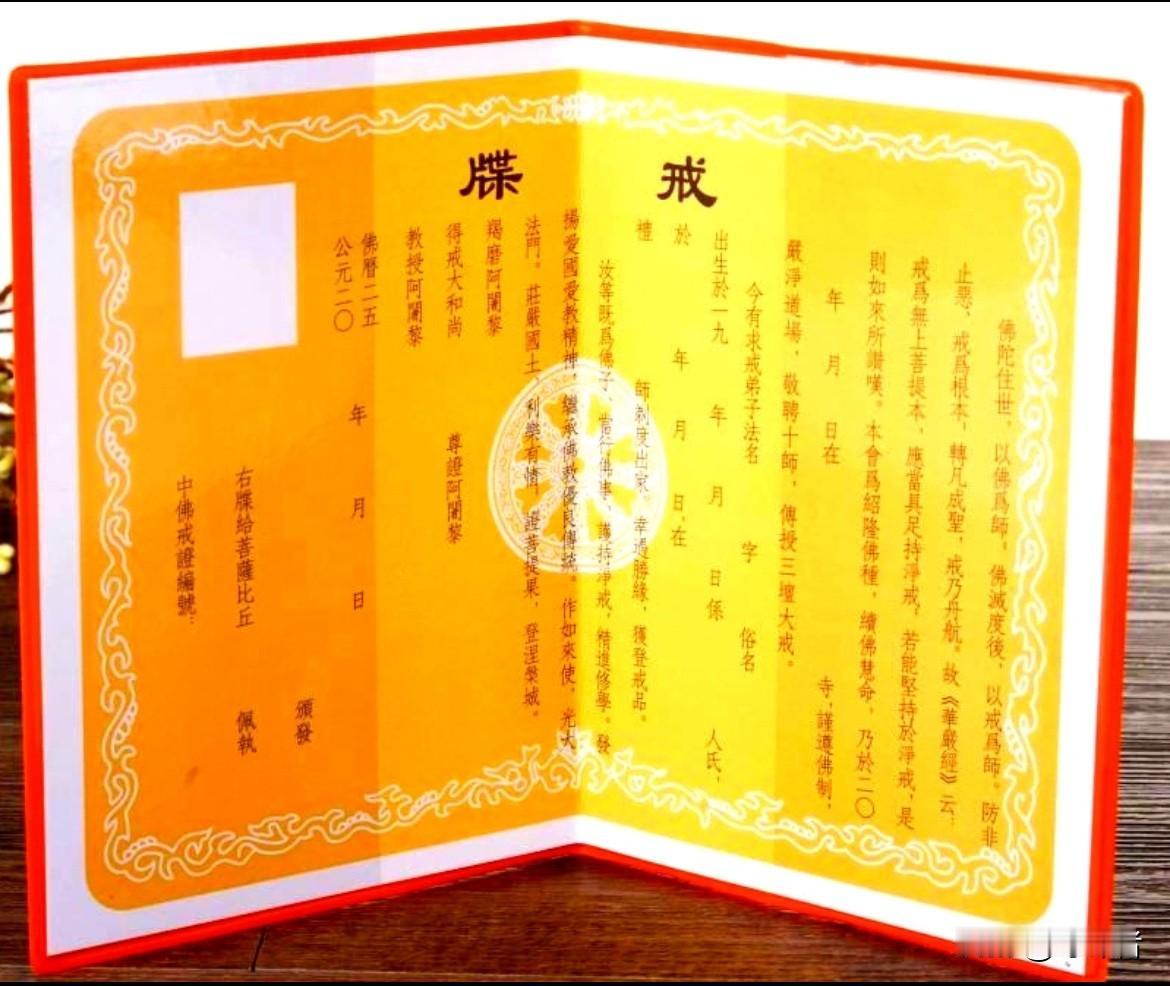 戒牒
佛陀住世，以佛爲師。佛滅度後，以戒爲師。防非
止惡，戒爲根本，轉凡成聖，戒乃舟航。故《華嚴經》云：
戒爲無上菩提本，應當具足持淨戒，若能堅持於淨戒，是
則如來所讚嘆。本會爲紹隆佛種，續佛慧命，乃於二〇
年 月 日在 寺，謹遵佛制，
嚴淨道場，敬聘十師，傳授三壇大戒。
今有求戒弟子法名 字 俗名
出生於一九 年 月 日係 人氏，
於 年 月 日，在
師剃度出家。幸遇勝緣，獲登戒品。
檀
汝等既爲佛子，當行佛事，護持淨戒，精進修學。發
揚愛國愛教精神，繼承佛教優良傳統。作如來使，光大
法門。莊嚴國土、利樂有情，證菩提果，登涅槃城。
羯磨阿闍黎
得戒大和尚 尊證阿闍黎
教授阿闍黎
佛曆二五
公元二〇 年 月 日
頒發
右牒給菩薩比丘 佩執
中佛戒證編號：